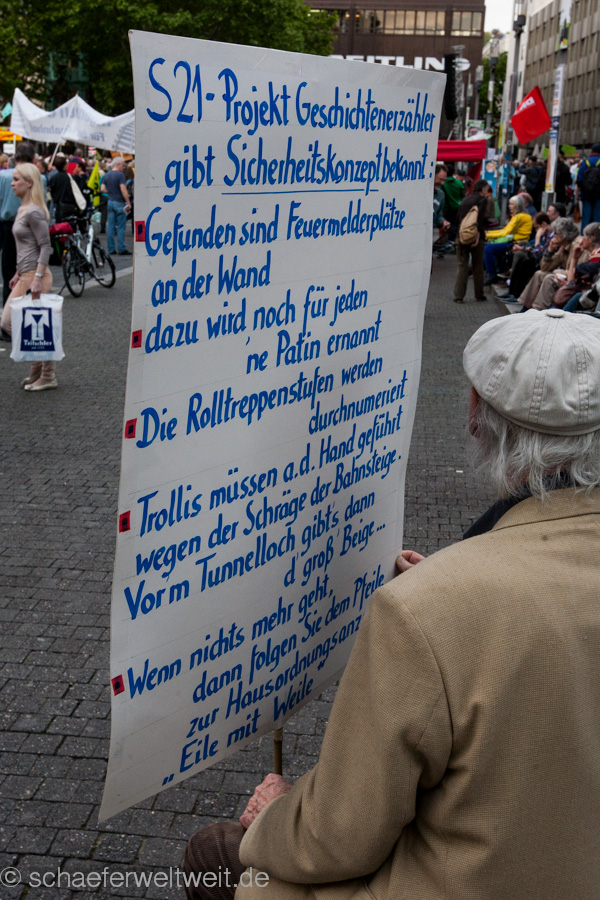 S21-Projekt Geschichtenerzähler
gibt Sicherheitskonzept bekannt:
Gefunden sind Feuermelderplätze
an der Wand
dazu wird 'noch für jeden
'ne Patin ernannt
Die Rolltreppenstufen werden
durchnumeriert
Trollis müssen a.d. Hand geführt
wegen der Schräge der Bahnsteige.
Vorm Tunnelloch gibt's dann
d' groß' Beige...
Wenn nichts mehr geht,
dann folgen Sie dem Pfeile
zur Hausordnungsanz
"Eile mit Weile
Tritschler
© schaeferweltweit.de